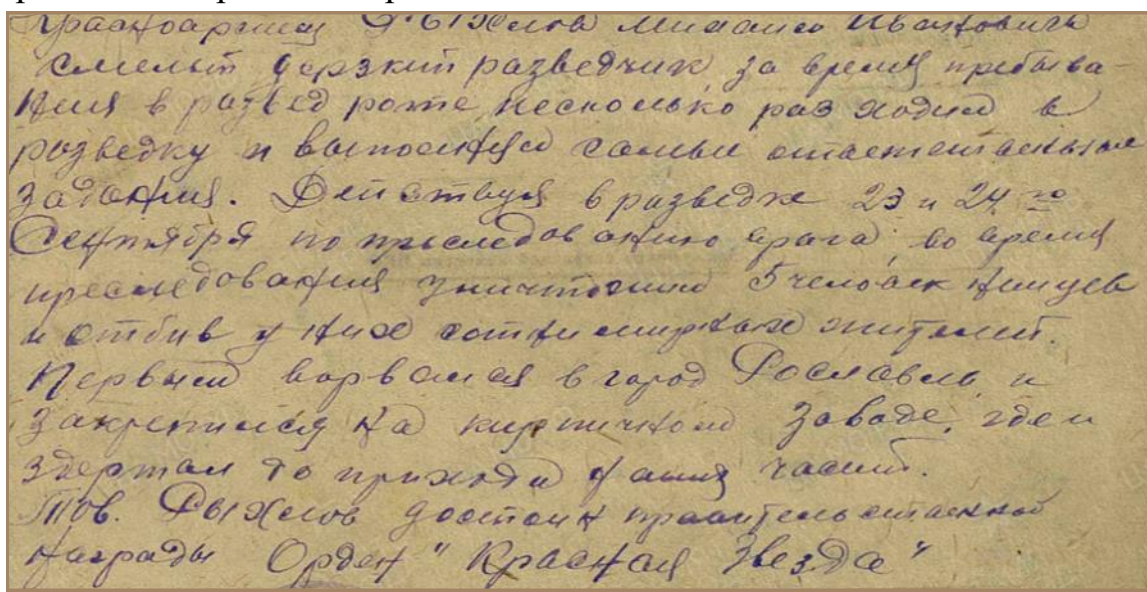 Красноармеец Рыхлов Михаил Иванович
смелый дерзкий разведчик за время пребыва-
ния в развед роте несколько раз ходил в
разведку и выполнял самые ответственные
задания. Действуя в разведке 23 и 24 го
Сентября по преследованию врага во время
преследования уничтожил 5 человек немцев
и отбив у них сотни мирных жителей.
Первый ворвался в город Рославль и
закрепился на кирпичном заводе, где и
здержал до прихода наших частей.
Тов. Рыхлов достоин правительственной
награды Орден "Красная Звезда"